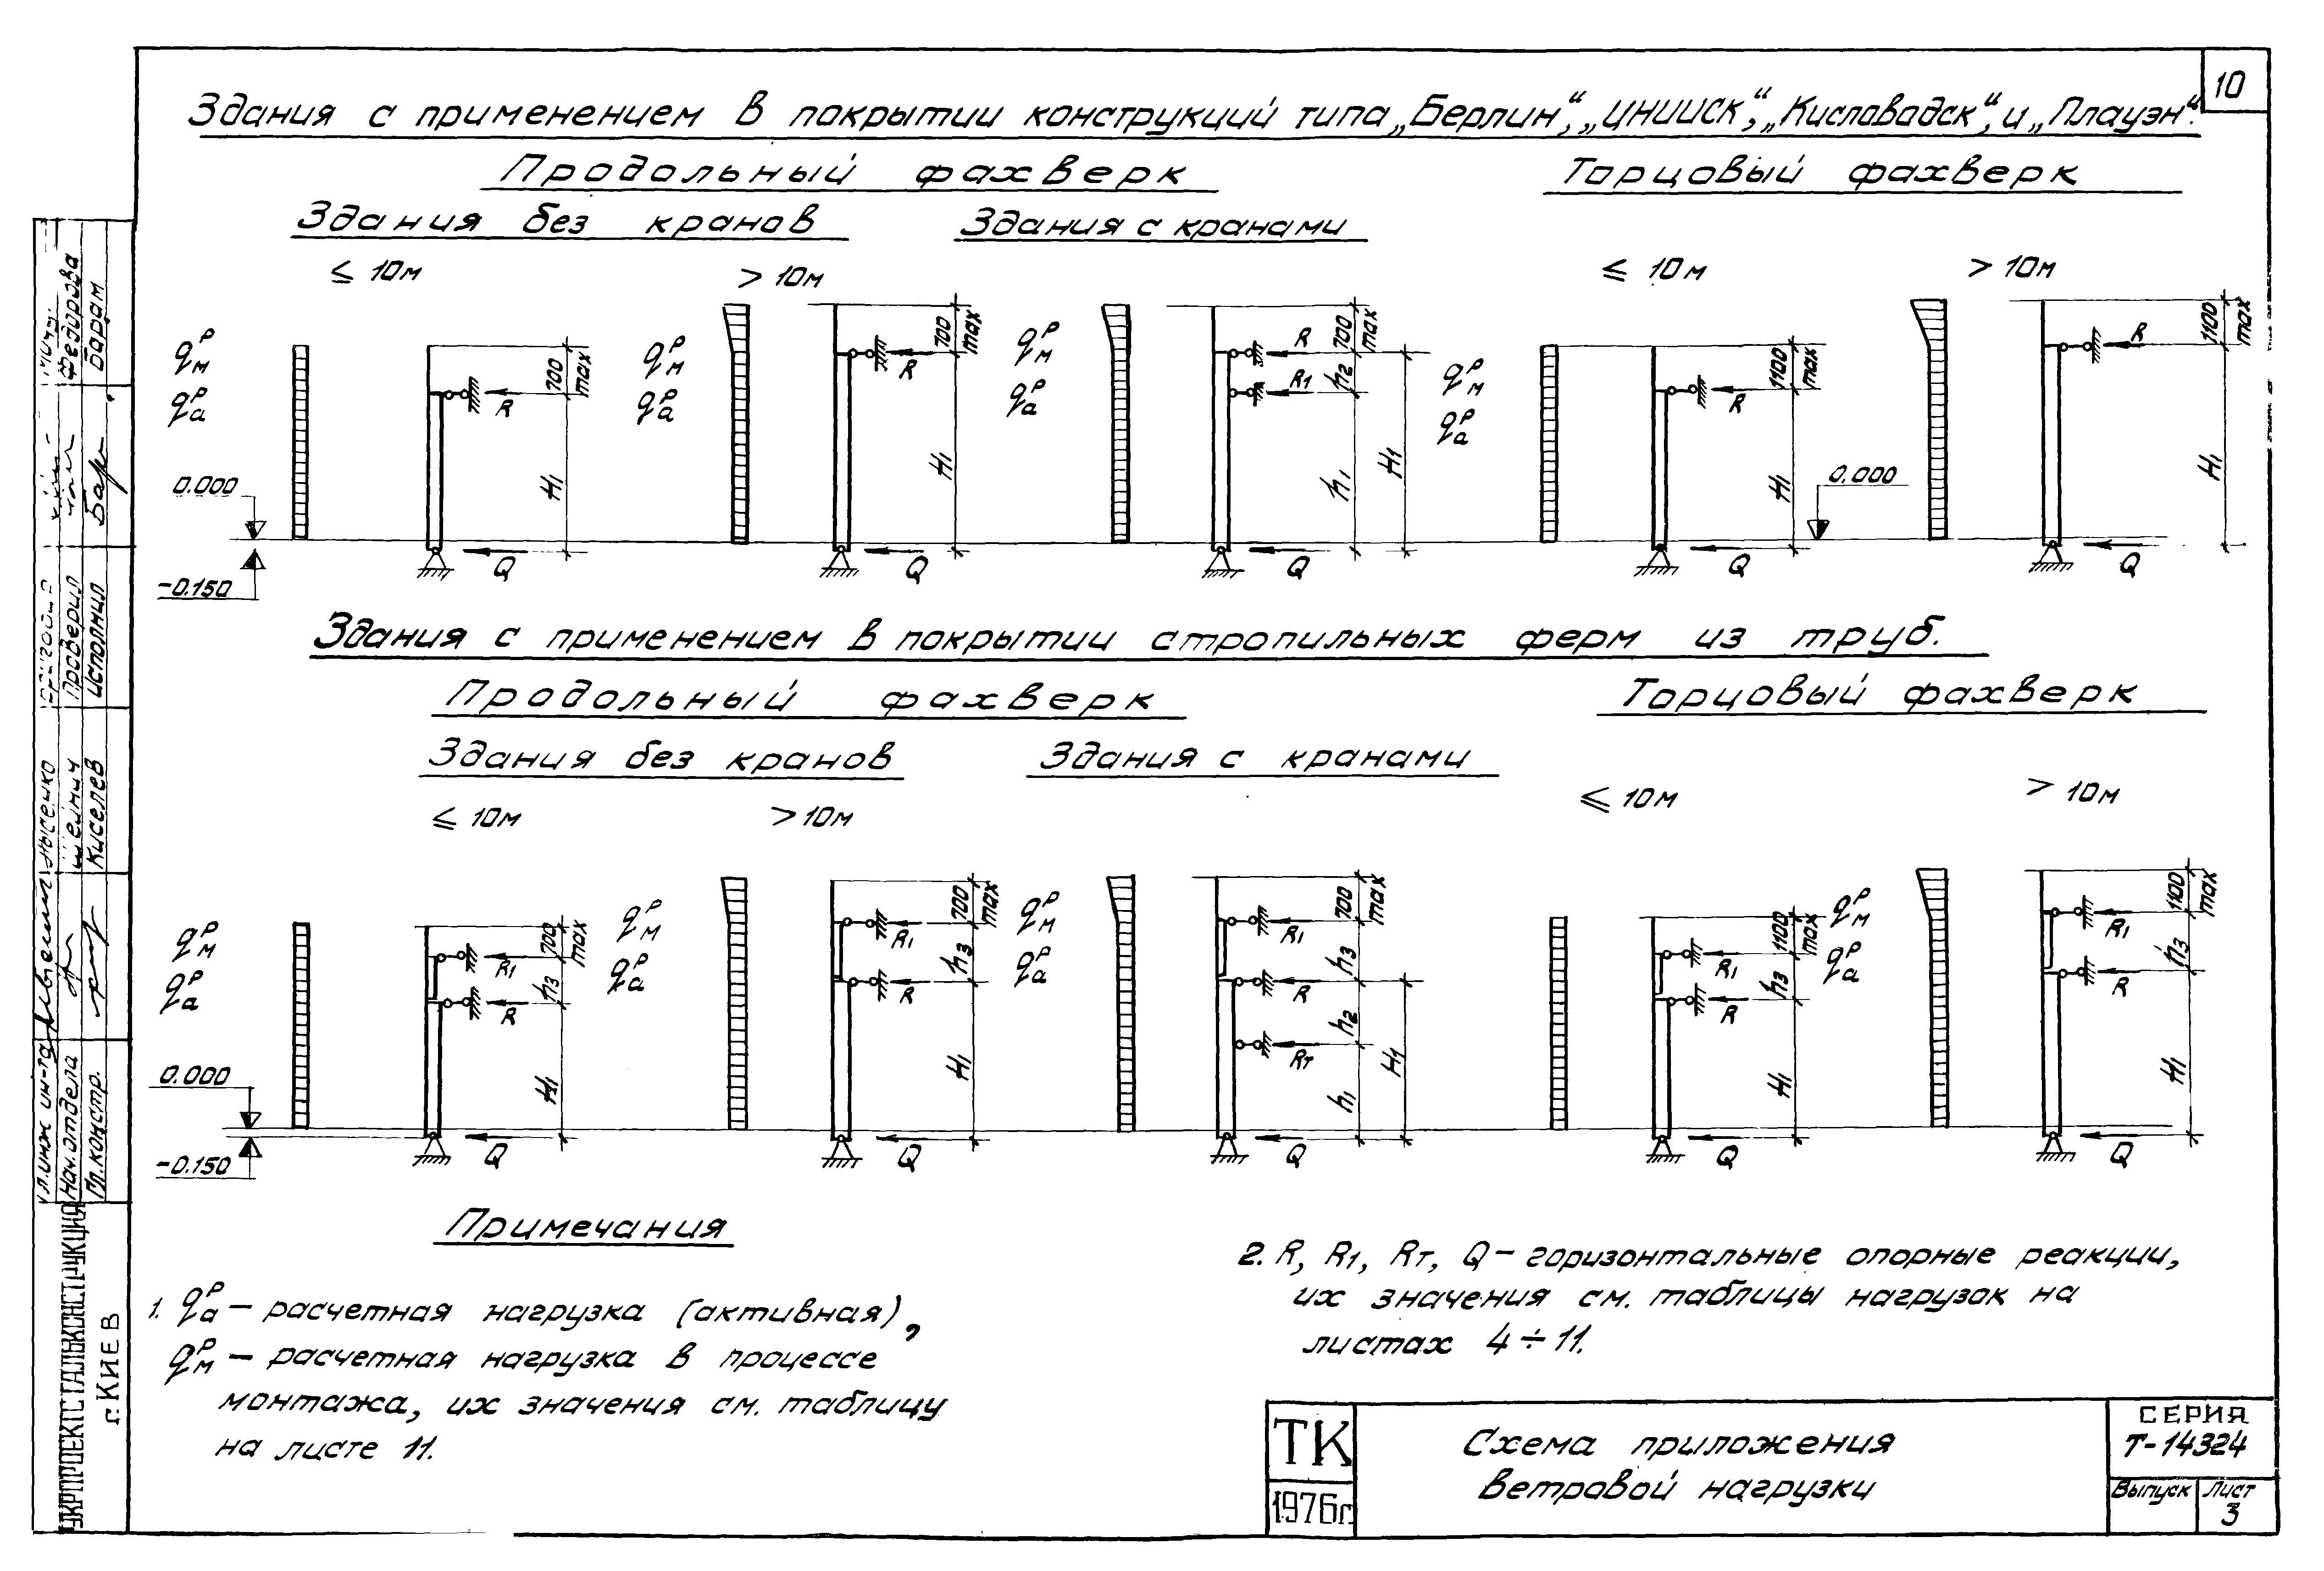 10
Здания с применением в покрытии конструкций типа „Берлин“, „ЦНИИСК“, „Кисловодск“, и „Плауэн“.
Продольный фахверк
Торцовый фахверк
Здания без кранов
Здания с кранами
≤ 10м
> 10м
≤ 10м
> 10м
qᴾм
qᴾа
R
700 max
H1
Q
qᴾм
qᴾа
R
700 max
H1
Q
qᴾм
qᴾа
R
R1
700 max
h2
h1
H1
Q
qᴾм
qᴾа
R
1100 max
H1
Q
R
1100 max
H1
Q
0.000
-0.150
0.000
Здания с применением в покрытии стропильных ферм из труб.
Продольный фахверк
Торцовый фахверк
Здания без кранов
Здания с кранами
≤ 10м
> 10м
≤ 10м
> 10м
qᴾм
qᴾа
R1
R
700 max
h3
H1
Q
qᴾм
qᴾа
R1
R
700 max
h3
H1
Q
qᴾм
qᴾа
R1
R
Rт
700 max
h3
h2
h1
H1
Q
R1
R
1100 max
h3
H1
Q
qᴾм
qᴾа
R1
R
1100 max
h3
H1
Q
0.000
-0.150
Примечания
1. qᴾа — расчетная нагрузка (активная),
qᴾм — расчетная нагрузка в процессе
монтажа, их значения см. таблицу
на листе 11.
2. R, R1, Rт, Q — горизонтальные опорные реакции,
их значения см. таблицы нагрузок на
листах 4÷11.
ТК
1976г.
Схема приложения
ветровой нагрузки
СЕРИЯ
Т-14324
Выпуск
Лист
3
УКРПРОЕКТСТАЛЬКОНСТРУКЦИЯ
г. КИЕВ
Гл. инж ин-та
Лысенко
Нач. отдела
Шейнич
Гл. констр.
Киселев
Проверил
Федорова
Исполнил
Барам